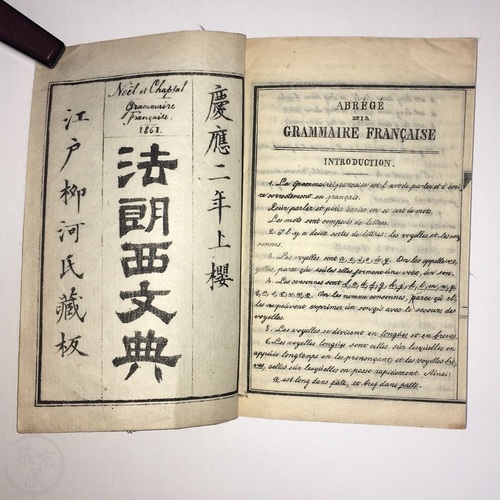 慶應二年上櫻
Noël et Chapsal
Grammaire
française.
法朗西文典
江戸柳河氏藏板
ABRÉGÉ
DE LA
GRAMMAIRE FRANÇAISE
INTRODUCTION.
1. La Grammaire française est l'art de parler et d'écri
re correctement en français.
Pour parler et pour écrire on se sert de mots.
Les mots sont composés de lettres.
2. Il y a deux sortes de lettres: les voyelles et les con
sonnes.
3. Les voyelles sont a, e, i, o, u, y. On les appelle vo
yelles, parce que seules elles forment une voix, un son.
4. Les consonnes sont b, c, d, f, g, h, j, k, l, m, n, p,
q, r, s, t, v, x, z. On les nomme consonnes, parce qu'el
les ne peuvent exprimer un son qu'avec le secours des
voyelles.
5. Les voyelles se divisent en longues et en brèves.
6. Les voyelles longues sont celles sur lesquelles on
appuie longtemps en les prononçant; et les voyelles brè
ves, celles sur lesquelles on passe rapidement. Ainsi:
a est long dans pâte, et bref dans patte.